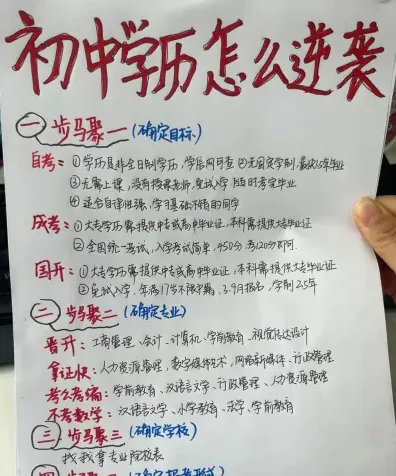 初中学历怎么逆袭
一 步骤一 (确定目标)
自考: ①学历是非全日制学历,学信网可查 ②无固定学制,最快1.5年毕业
③无需上课,没有授课老师,免试入学 随时考完毕业
④适合自律性强,学习基础不错的同学
成考: ①大专学历需提供中专或高中毕业证,本科需提供大专毕业证
②全国统一考试,入学考试简单,450分,考120分即可.
国开: ①大专学历需提供中专或高中毕业证,本科需提供大专毕业证
②免试入学,年满17岁不限字籍,3.9月报名,学制2.5年
二 步骤二 (确定专业)
晋升: 工商管理、会计、计算机、学前教育、视觉传达设计
拿证快: 人力资源管理,数字媒体技术,网络新媒体、行政管理
考公考编: 学前教育、汉语言文学、行政管理、人力资源管理
不考数学: 汉语言文学、小学教育、法学、学前教育
三 步骤三 (确定学校)
找我拿专业院校表